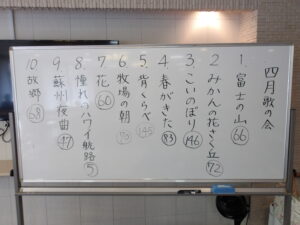 四月歌の会
1. 富士の山 66
2 みかんの花さく丘 72
3. こいのぼり 146
4 春がきた 83
5. 背くらべ 145
6 牧場の朝
7 花 60
8 憧れのハワイ航路 5
9 蘇州夜曲 47
10 故郷 68